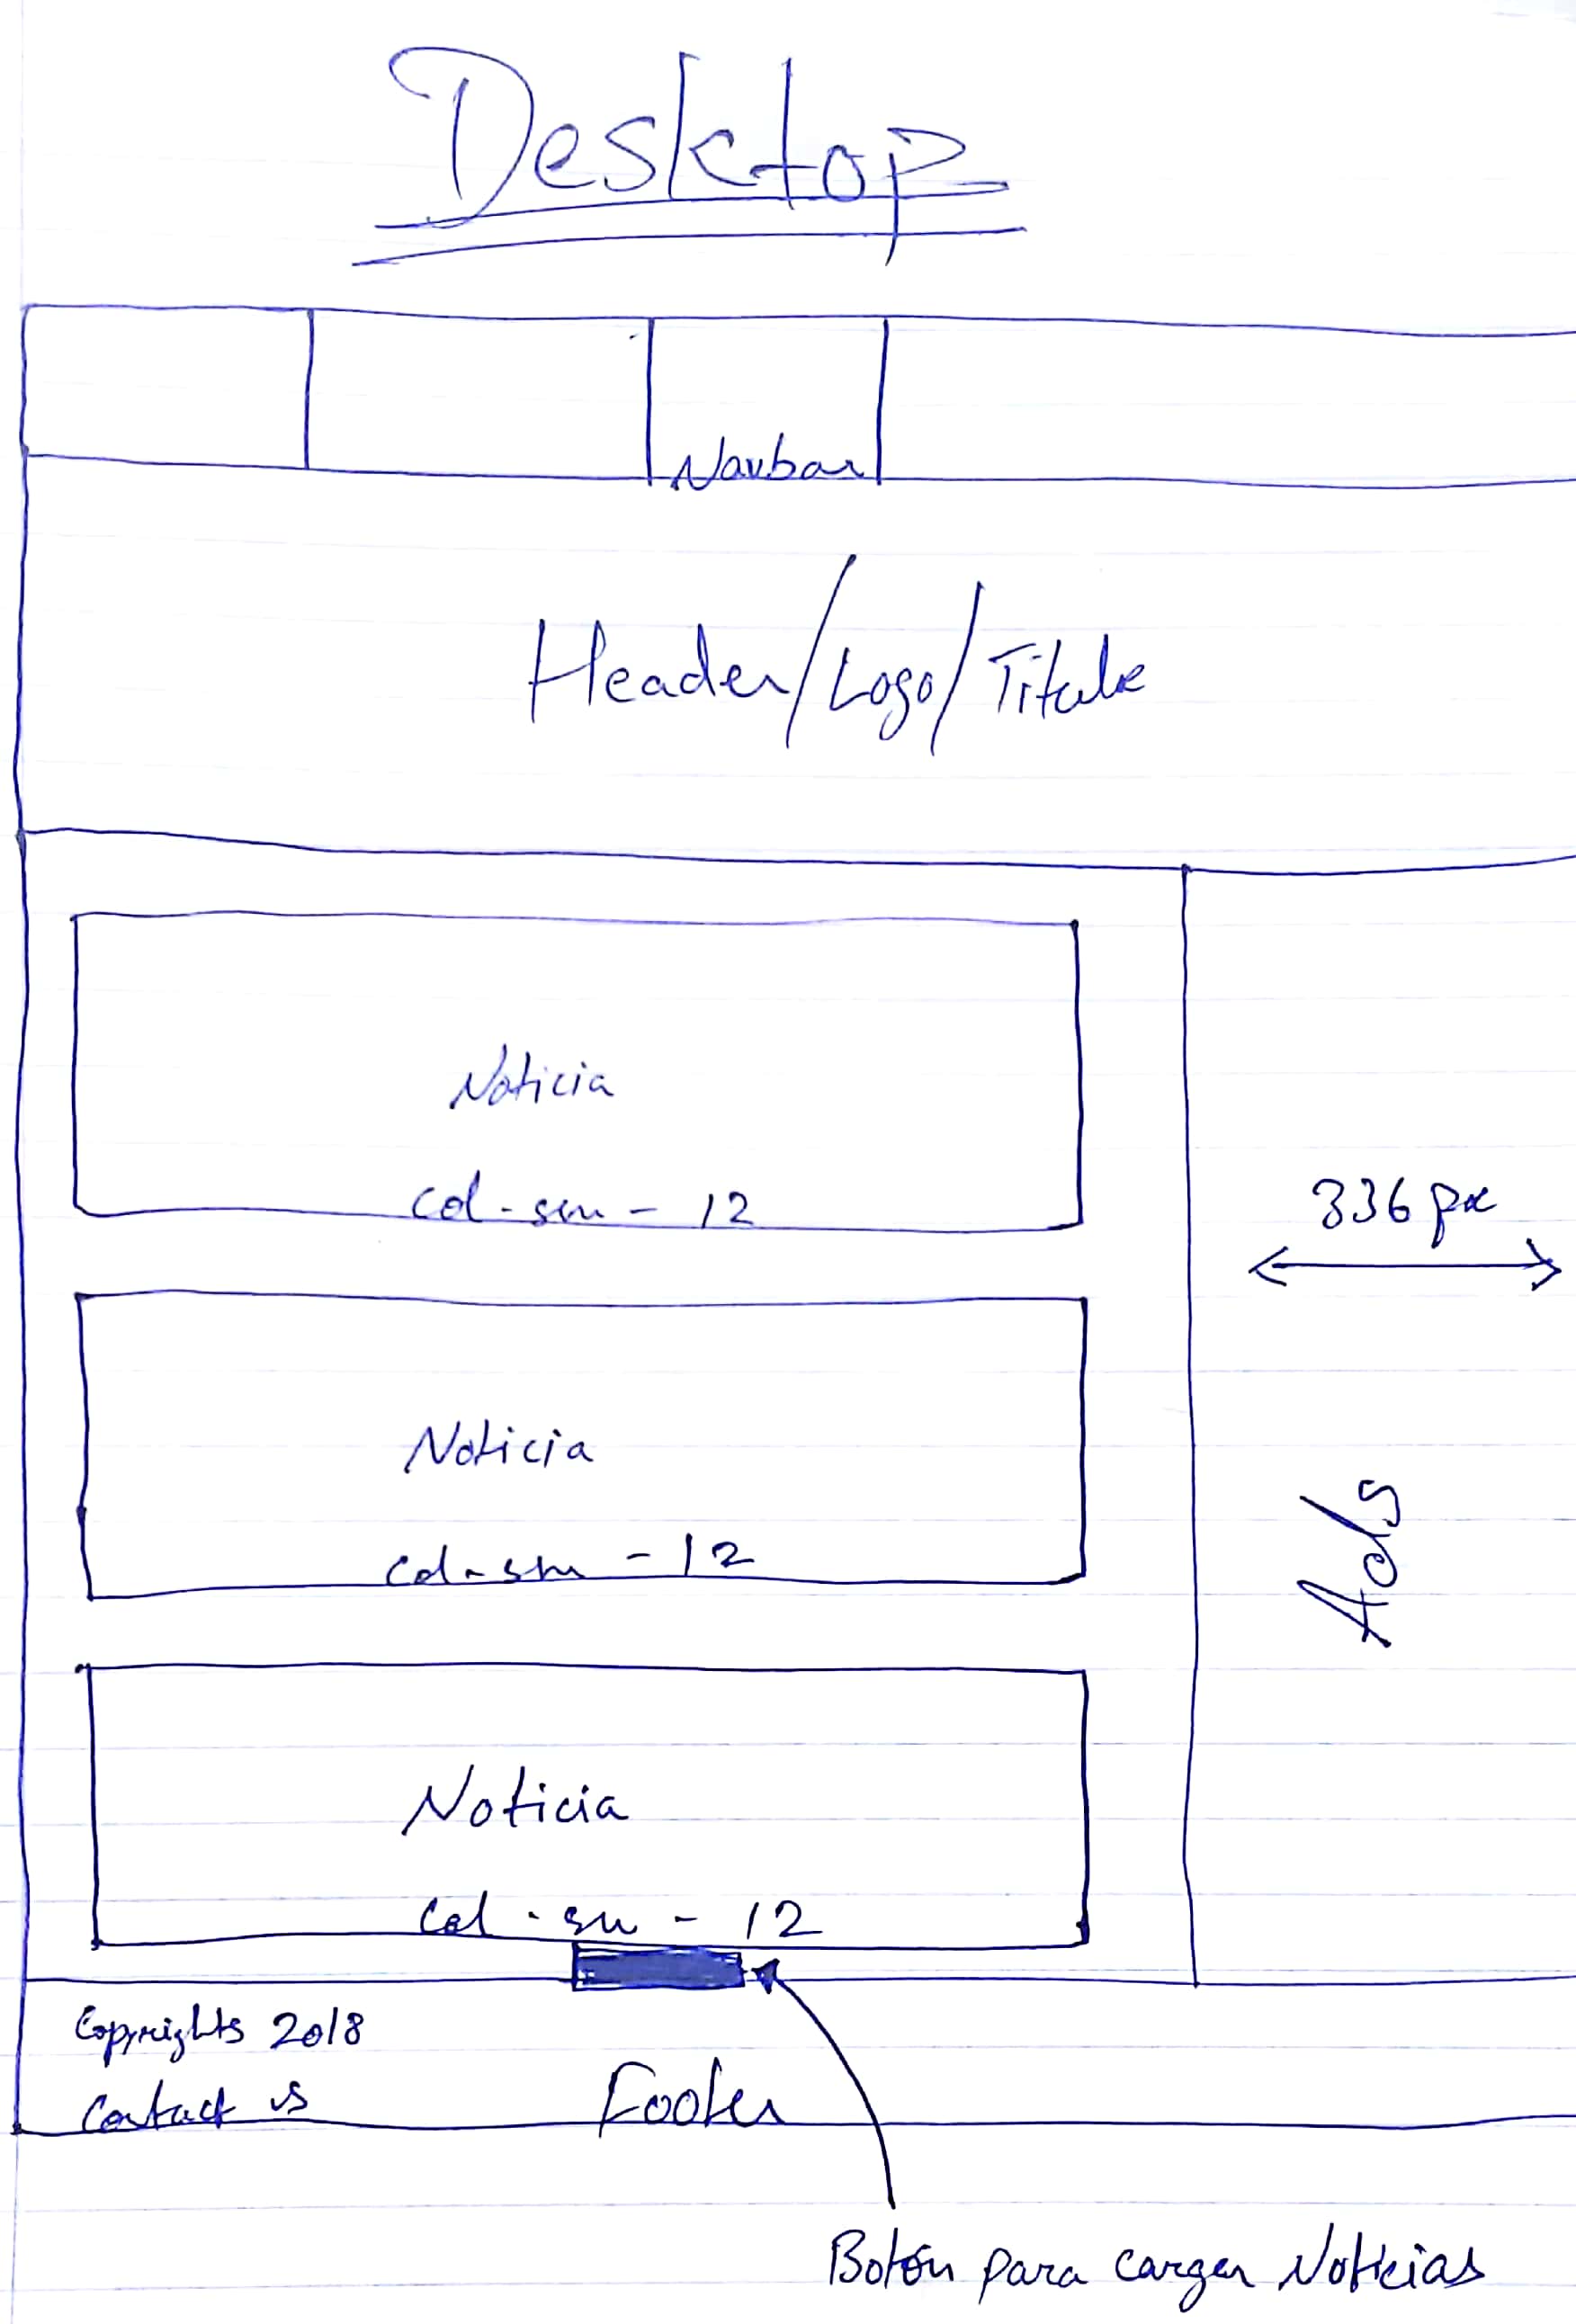 Desktop
Navbar
Header/Logo/Titulo
Noticia
col-sm-12
336 px
Noticia
col-sm-12
Ads
Noticia
col-sm-12
Copyrights 2018
Contact us
Footer
Botón para cargar Noticias